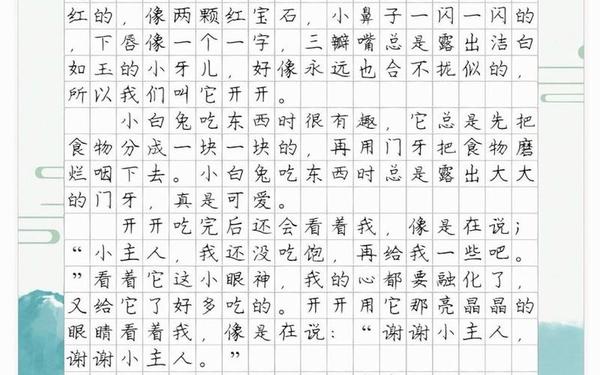 红的，像两颗红宝石，小鼻子一闪一闪的
，下唇像一个一字，三瓣嘴总是露出洁白
如玉的小牙儿，好像永远也合不拢似的，
所以我们叫它开开。
小白兔吃东西时很有趣，它总是先把
食物分成一块一块的，再用门牙把食物磨
烂咽下去。小白兔吃东西时总是露出大大
的门牙，真是可爱。
开开吃完后还会看着我，像是在说；
“小主人，我还没吃饱，再给我一些吧。
”看着它这小眼神，我的心都要融化了，
又给它了好多吃的。开开用它那亮晶晶的
眼睛看着我，像是在说：“谢谢小主人，
谢谢小主人。”